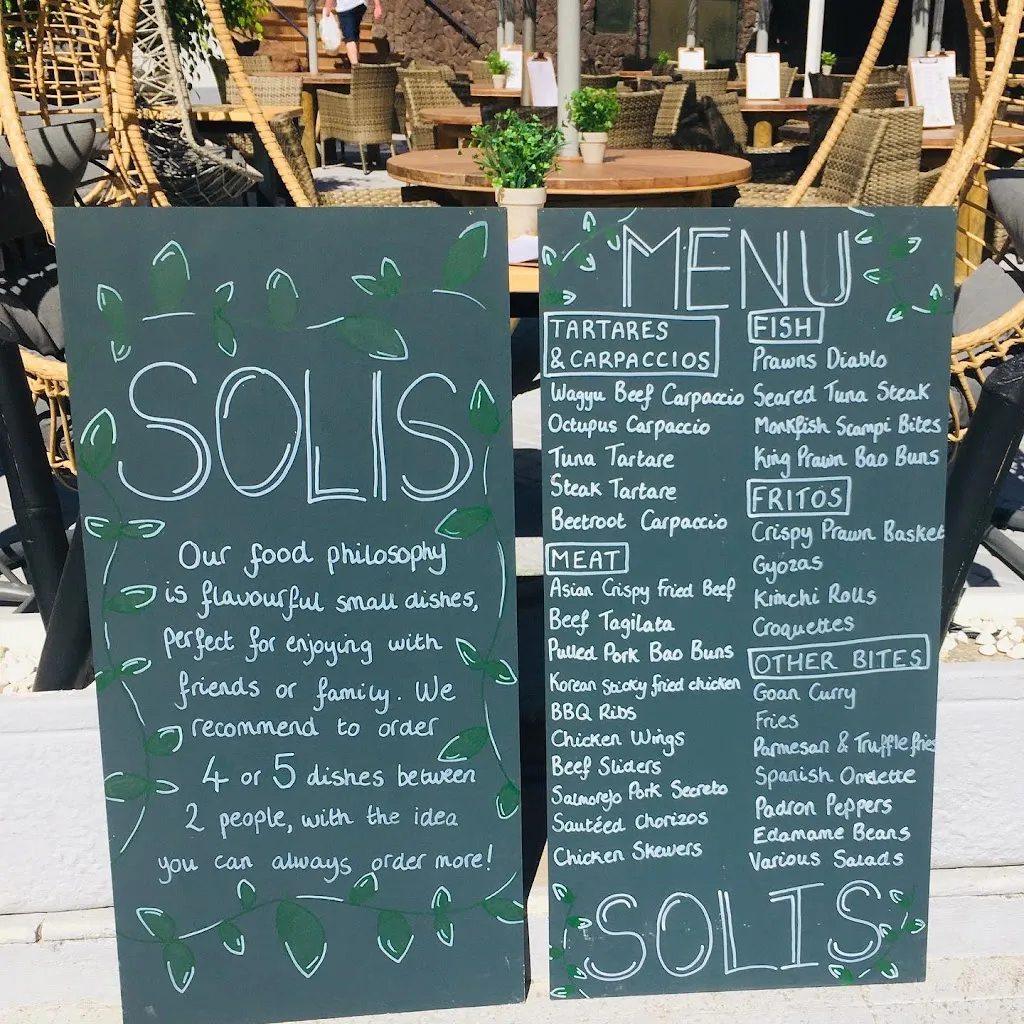 SOLIS
Our food philosophy
is flavourful small dishes,
perfect for enjoying with
friends or family. We
recommend to order
4 or 5 dishes between
2 people, with the idea
you can always order more!
MENU
TARTARES
& CARPACCIOS
Wagyu Beef Carpaccio
Octupus Carpaccio
Tuna Tartare
Steak Tartare
Beetroot Carpaccio
MEAT
Asian Crispy Fried Beef
Beef Tagilata
Pulled Pork Bao Buns
Korean Sticky fried chicken
BBQ Ribs
Chicken Wings
Beef Sliders
Salmorejo Pork Secreto
Sautéed Chorizos
Chicken Skewers
FISH
Prawns Diablo
Seared Tuna Steak
Monkfish Scampi Bites
King Prawn Bao Buns
FRITOS
Crispy Prawn Basket
Gyozas
Kimchi Rolls
Croquettes
OTHER BITES
Goan Curry
Fries
Parmesan & Truffle fries
Spanish Omelette
Padron Peppers
Edamame Beans
Various Salads
SOLIS